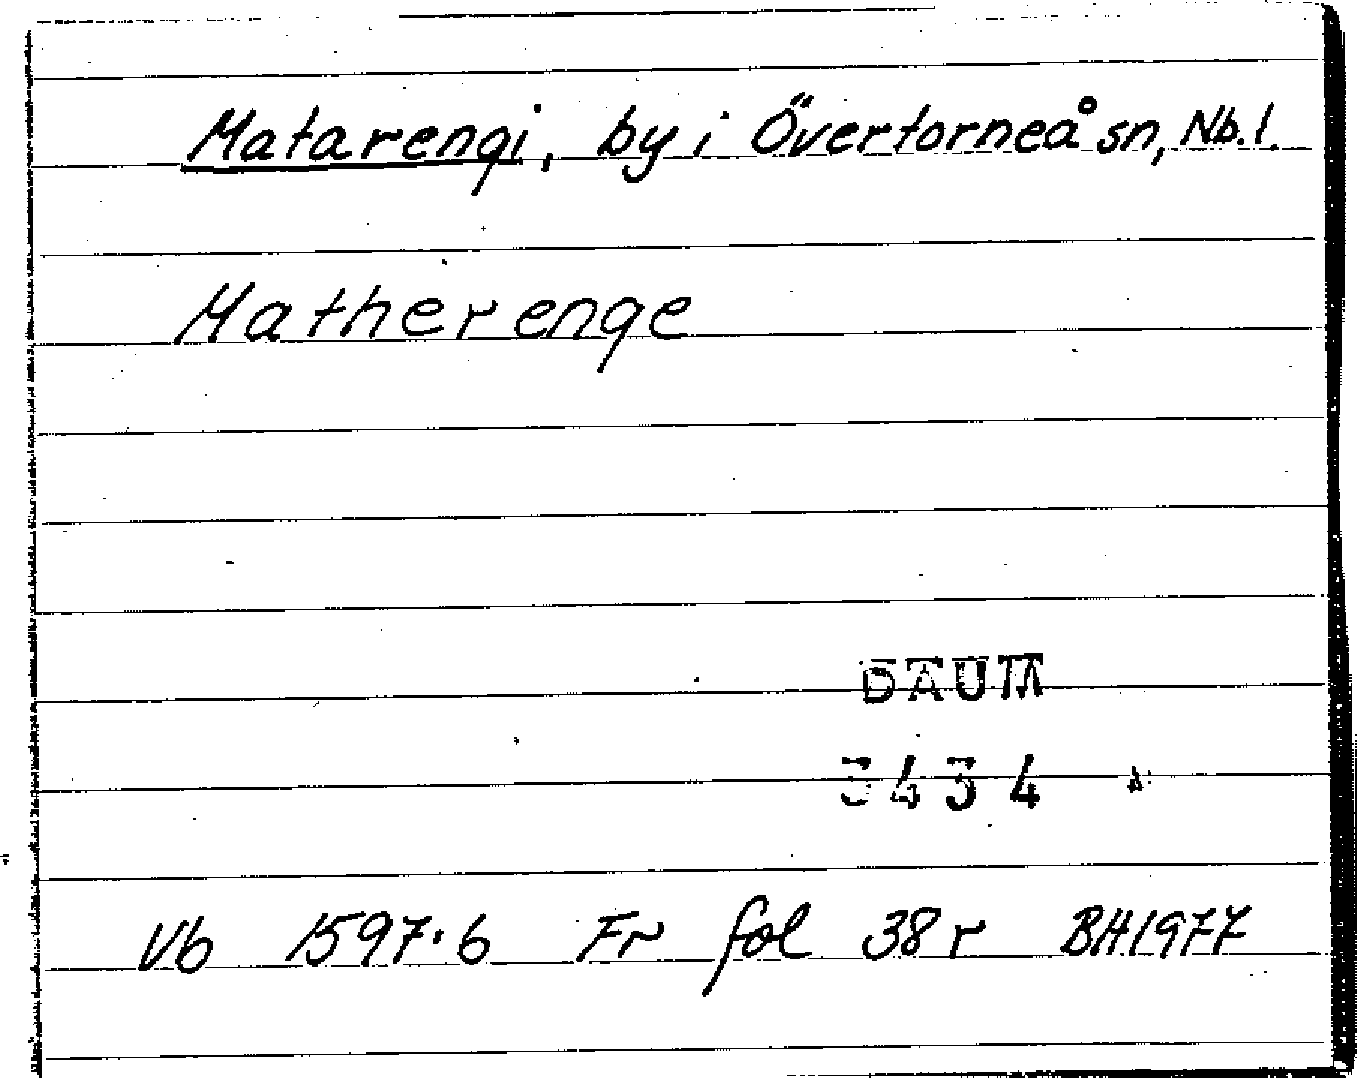 Matarengi, by i Övertorneå sn, Nb. l.
Matherenge
DAUM
3434
Vb 1597:6 Fr fol 38 r BH 1977